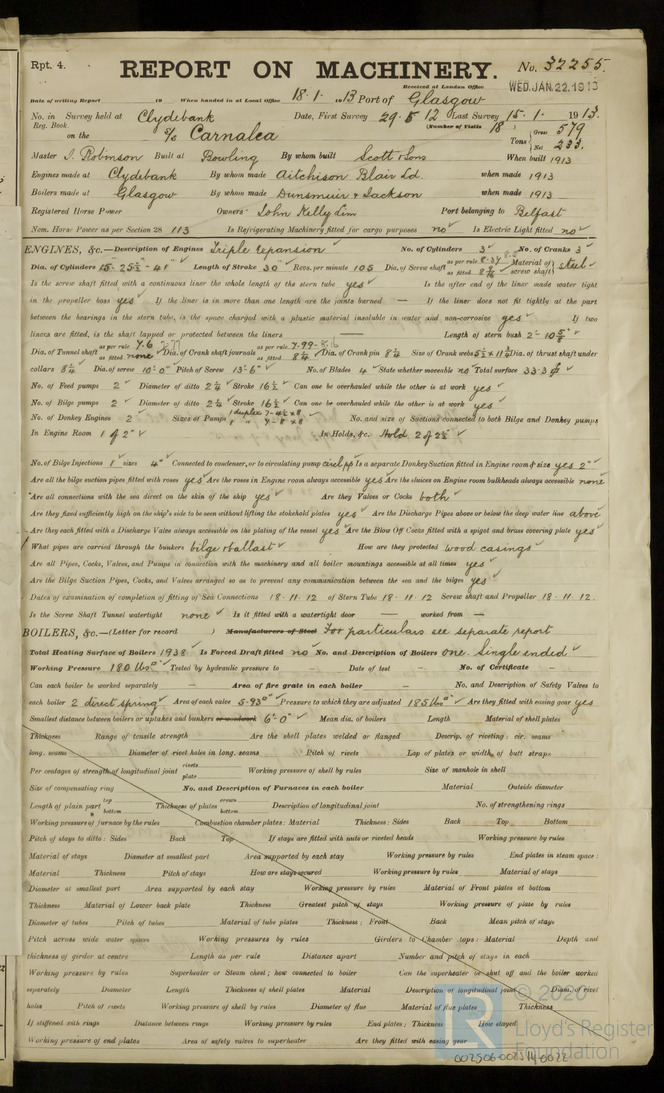 Rpt. 4.
REPORT ON MACHINERY.
No. 32255.
Received at London Office WED. JAN. 22. 1913
Date of writing Report 19 When handed in at Local Office 18.1.1913 Port of Glasgow
No. in Survey held at Clydebank Date, First Survey 29.5.12 Last Survey 15.1.1913.
Reg. Book. (Number of Visits 18)
on the S/S Carnalea Tons Gross 579 Net 233.
Master J. Robinson Built at Bowling By whom built Scott & Sons When built 1913
Engines made at Clydebank By whom made Aitchison Blair Ld. when made 1913
Boilers made at Glasgow By whom made Dunsmuir & Jackson when made 1913
Registered Horse Power Owners John Kelly Lim Port belonging to Belfast
Nom. Horse Power as per Section 28 113 Is Refrigerating Machinery fitted for cargo purposes no Is Electric Light fitted no
ENGINES, &c.—Description of Engines Triple Expansion No. of Cylinders 3 No. of Cranks 3
Dia. of Cylinders 15"-25½"-41" Length of Stroke 30" Revs. per minute 105 Dia. of Screw shaft as per rule 8.37 as fitted Material of screw shaft steel
Is the screw shaft fitted with a continuous liner the whole length of the stern tube yes Is the after end of the liner made water tight
in the propeller boss yes If the liner is in more than one length are the joints burned — If the liner does not fit tightly at the part
between the bearings in the stern tube, is the space charged with a plastic material insoluble in water and non-corrosive yes If two
liners are fitted, is the shaft lapped or protected between the liners — Length of stern bush
Dia. of Tunnel shaft as per rule 7.6 as fitted none Dia. of Crank shaft journals as per rule 7.99 as fitted 8¼ Dia. of Crank pin 8¼ Size of Crank webs Dia. of thrust shaft under
collars 8¼ Dia. of screw 10'-0" Pitch of Screw 13'-6" No. of Blades 4 State whether moveable no Total surface 33.3
No. of Feed pumps 2 Diameter of ditto 2¼ Stroke 16½ Can one be overhauled while the other is at work yes
No. of Bilge pumps 2 Diameter of ditto 2¼ Stroke 16½ Can one be overhauled while the other is at work yes
No. of Donkey Engines 2 Sizes of Pumps 1 duplex No. and size of Suctions connected to both Bilge and Donkey pumps
In Engine Room 1 of 2" In Holds, &c. Hold 2 of 2½
No. of Bilge Injections 1 sizes 4" Connected to condenser, or to circulating pump Is a separate Donkey Suction fitted in Engine room & size yes 2"
Are all the bilge suction pipes fitted with roses yes Are the roses in Engine room always accessible yes Are the sluices on Engine room bulkheads always accessible none
Are all connections with the sea direct on the skin of the ship yes Are they Valves or Cocks both
Are they fixed sufficiently high on the ship's side to be seen without lifting the stokehold plates yes Are the Discharge Pipes above or below the deep water line above
Are they each fitted with a Discharge Valve always accessible on the plating of the vessel yes Are the Blow Off Cocks fitted with a spigot and brass covering plate yes
What pipes are carried through the bunkers bilge & ballast How are they protected wood casings
Are all Pipes, Cocks, Valves, and Pumps in connection with the machinery and all boiler mountings accessible at all times yes
Are the Bilge Suction Pipes, Cocks, and Valves arranged so as to prevent any communication between the sea and the bilges yes
Dates of examination of completion of fitting of Sea Connections 18.11.12 of Stern Tube 18.11.12 Screw shaft and Propeller 18.11.12.
Is the Screw Shaft Tunnel watertight none Is it fitted with a watertight door — worked from —
BOILERS, &c.—(Letter for record ) Manufacturers of Steel For particulars see separate report
Total Heating Surface of Boilers 1938 Is Forced Draft fitted no No. and Description of Boilers one. Single ended
Working Pressure 180 lbs Tested by hydraulic pressure to — Date of test — No. of Certificate —
Can each boiler be worked separately — Area of fire grate in each boiler — No. and Description of Safety Valves to
each boiler 2 direct spring Area of each valve 5.93" Pressure to which they are adjusted 185 lbs Are they fitted with easing gear yes
Smallest distance between boilers or uptakes and bunkers or woodwork 6'-0" Mean dia. of boilers Length Material of shell plates
Thickness Range of tensile strength Are the shell plates welded or flanged Descrip. of riveting: cir. seams
long. seams Diameter of rivet holes in long. seams Pitch of rivets Lap of plates or width of butt straps
Per centages of strength of longitudinal joint rivets plate Working pressure of shell by rules Size of manhole in shell
Size of compensating ring No. and Description of Furnaces in each boiler Material Outside diameter
Length of plain part top bottom Thickness of plates crown bottom Description of longitudinal joint No. of strengthening rings
Working pressure of furnace by the rules Combustion chamber plates: Material Thickness: Sides Back Top Bottom
Pitch of stays to ditto: Sides Back Top If stays are fitted with nuts or riveted heads Working pressure by rules
Material of stays Diameter at smallest part Area supported by each stay Working pressure by rules End plates in steam space:
Material Thickness Pitch of stays How are stays secured Working pressure by rules Material of stays
Diameter at smallest part Area supported by each stay Working pressure by rules Material of Front plates at bottom
Thickness Material of Lower back plate Thickness Greatest pitch of stays Working pressure of plate by rules
Diameter of tubes Pitch of tubes Material of tube plates Thickness: Front Back Mean pitch of stays
Pitch across wide water spaces Working pressures by rules Girders to Chamber tops: Material Depth and
thickness of girder at centre Length as per rule Distance apart Number and pitch of stays in each
Working pressure by rules Superheater or Steam chest; how connected to boiler Can the superheater be shut off and the boiler worked
separately Diameter Length Thickness of shell plates Material Description of longitudinal joint Diam. of rivet
holes Pitch of rivets Working pressure of shell by rules Diameter of flue Material of flue plates Thickness
If stiffened with rings Distance between rings Working pressure by rules End plates: Thickness How stayed
Working pressure of end plates Area of safety valves to superheater Are they fitted with easing gear
© 2020
Lloyd's Register
Foundation
002506-002514-0022